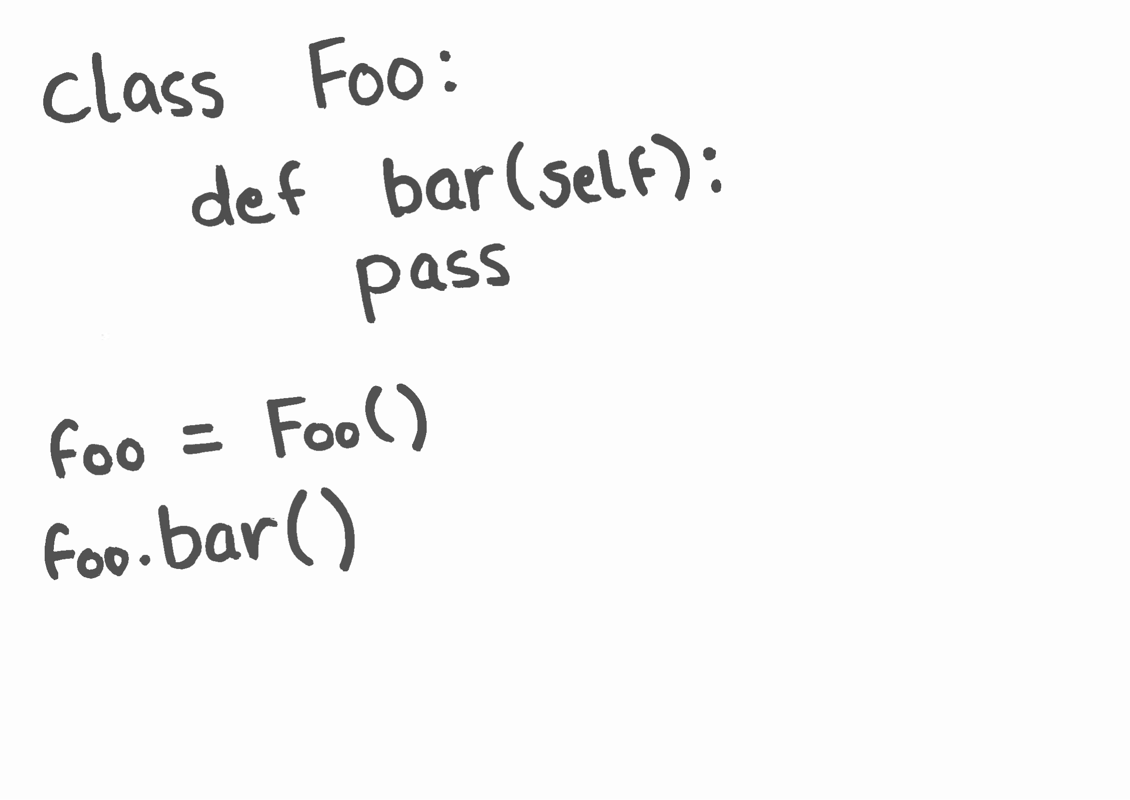 class Foo:
    def bar(self):
        pass
foo = Foo()
foo.bar()